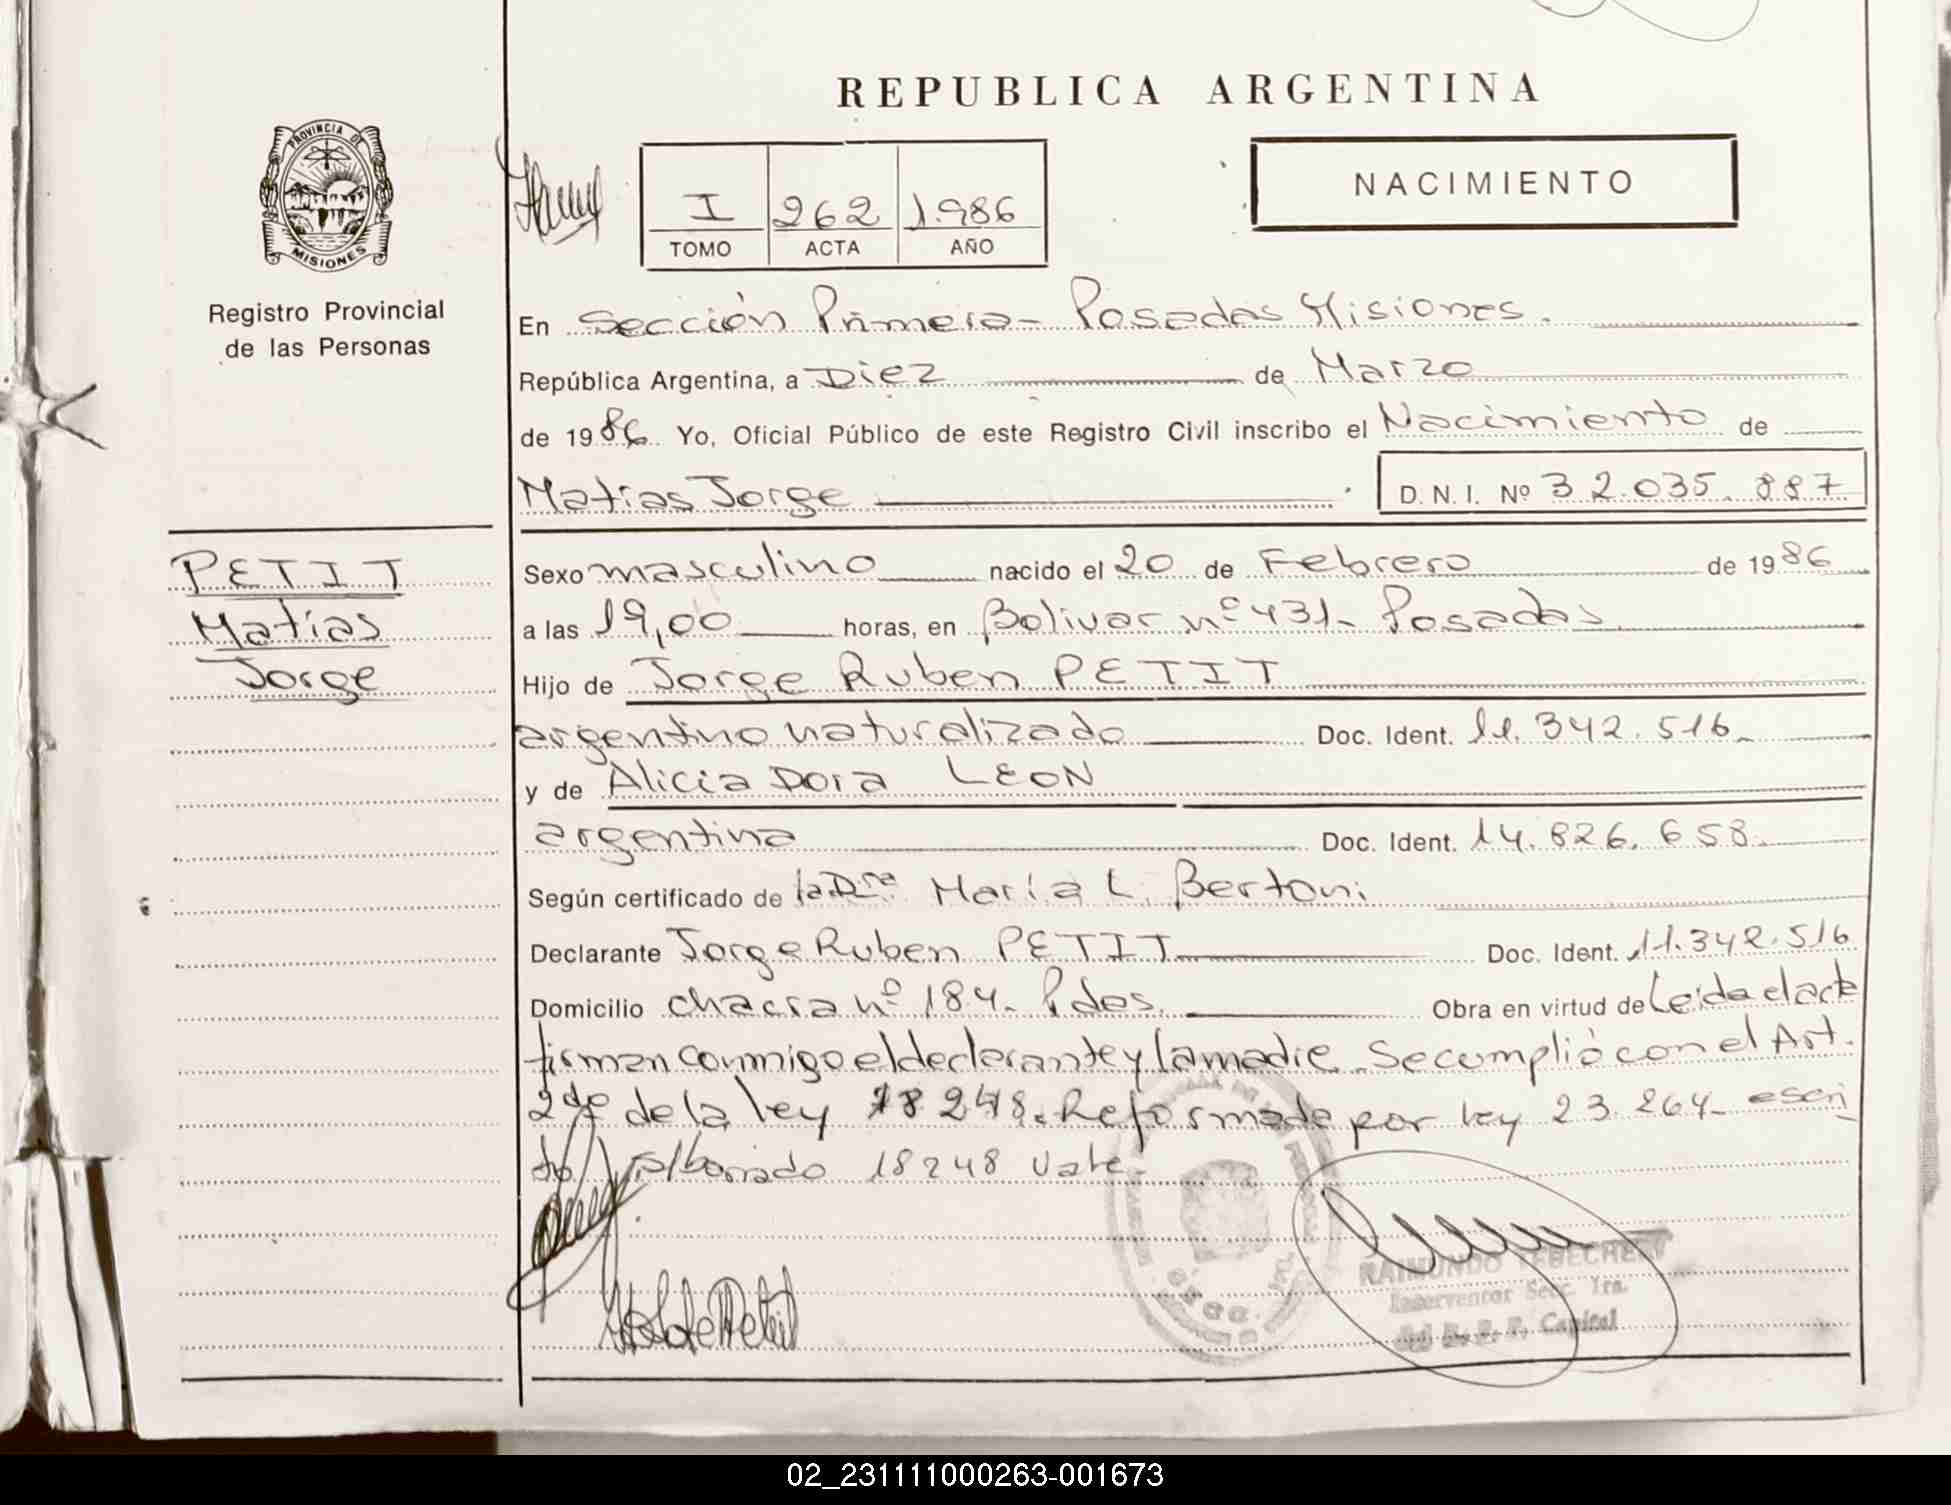 REPUBLICA ARGENTINA
PROVINCIA DE
MISIONES
Registro Provincial
de las Personas
I 262 1.986
TOMO ACTA AÑO
NACIMIENTO
En Sección Primera - Posadas Misiones.
República Argentina, a Diez de Marzo
de 1986 Yo, Oficial Público de este Registro Civil inscribo el Nacimiento de
Matias Jorge
D. N. I. Nº 32.035.887
PETIT
Matías
Jorge
Sexo masculino nacido el 20 de Febrero de 1986
a las 19,00 horas, en Bolivar nº 431- Posadas.
Hijo de Jorge Ruben PETIT
argentino naturalizado Doc. Ident. 11.342.516-
y de Alicia Dora LEON
argentina Doc. Ident. 14.826.658.
Según certificado de la Dra Maria L. Bertoni
Declarante Jorge Ruben PETIT Doc. Ident. 11.342.516
Domicilio chacra nº 184- Pdas. Obra en virtud de Leida el acta
firman conmigo el declarante y la madre. Se cumplió con el Art.
2do de la ley 18248. Reformada por ley 23.264- escri
to s/borrado 18248 Vale.
RAIMUNDO
Interventor Secc. 1ra.
del R. P. P. Capital
02_231111000263-001673